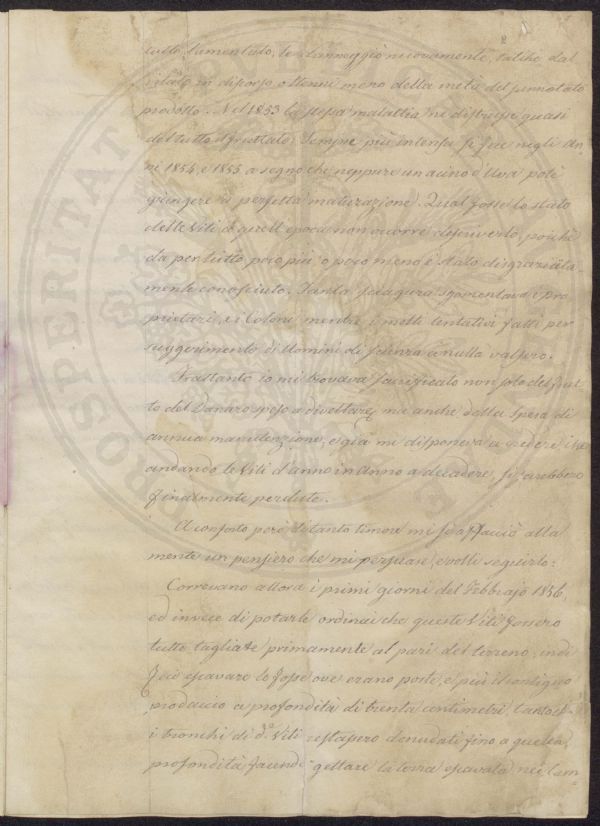 tutto lamentato, le danneggiò nuovamente, talchè dal
in discorso ottenni meno della metà del sennotato
prodotto. Nel 1853 la stessa malattia ne distrusse quasi
del tutto il fruttato. Sempre più intensa si fece negli An-
ni 1854, e 1855 a segno che neppure un acino d'Uva potè
giungere a perfetta maturazione. Qual fosse lo stato
delle Viti a quell'epoca non occorre descriverlo, poichè
da per tutto poco più o poco meno è stato disgraziata-
mente conosciuto. Tanta sciagura sgomentava i pro-
prietari, e i Coloni mentre i molti tentativi fatti per
suggerimento di Uomini di scienza a nulla valsero.
Frattanto io mi trovava sacrificato non solo del frut-
to del Danaro speso a divettare, ma anche della Spesa di
annua manutenzione, e già mi disponeva a vedere che
andando le Viti d'anno in Anno a decadere, si sarebbero
finalmente perdute.
A conforto però di tanto timore mi si affacciò alla
mente un pensiero che mi persuase, e volli seguirlo:
Correvano allora i primi giorni del Febbrajo 1856,
ed invece di potarle ordinai che queste Viti fossero
tutte tagliate primamente al pari del terreno, indi
feci escavare le fosse ove erano poste, e più il contiguo
produccio a profondità di trenta centimetri, tantochè
i tronchi di d.e Viti restassero denudati fino a quella
profondità facendo gettare la terra escavata nei cam-